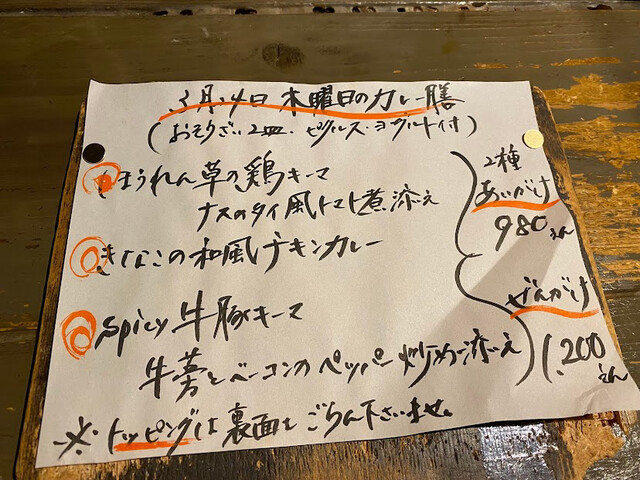 3月14日 木曜日のカレー膳
(おそうざい2皿・ピクルス・ヨーグルト付)
ほうれん草の鶏キーマ
ナスのタイ風トマト煮添え
きなこの和風チキンカレー
spicy 牛豚キーマ
牛蒡とベーコンのペッパー炒め添え
2種
あいがけ
980えん
ぜんがけ
1,200えん
※トッピングは裏面をごらん下さいませ。